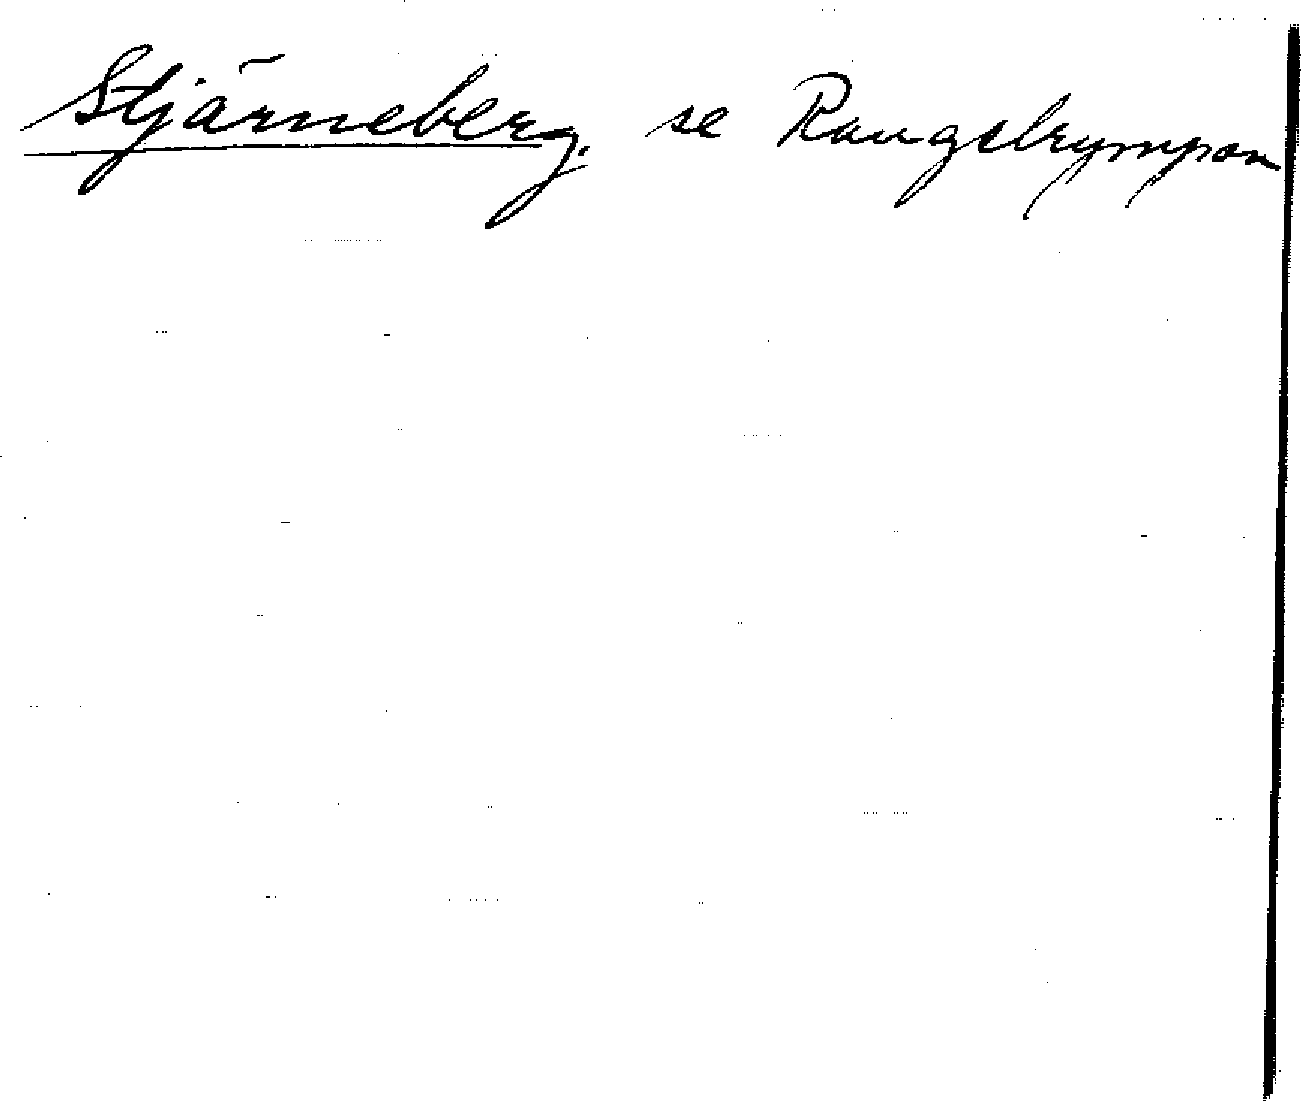 Stjärneberg. se Rangstrympan